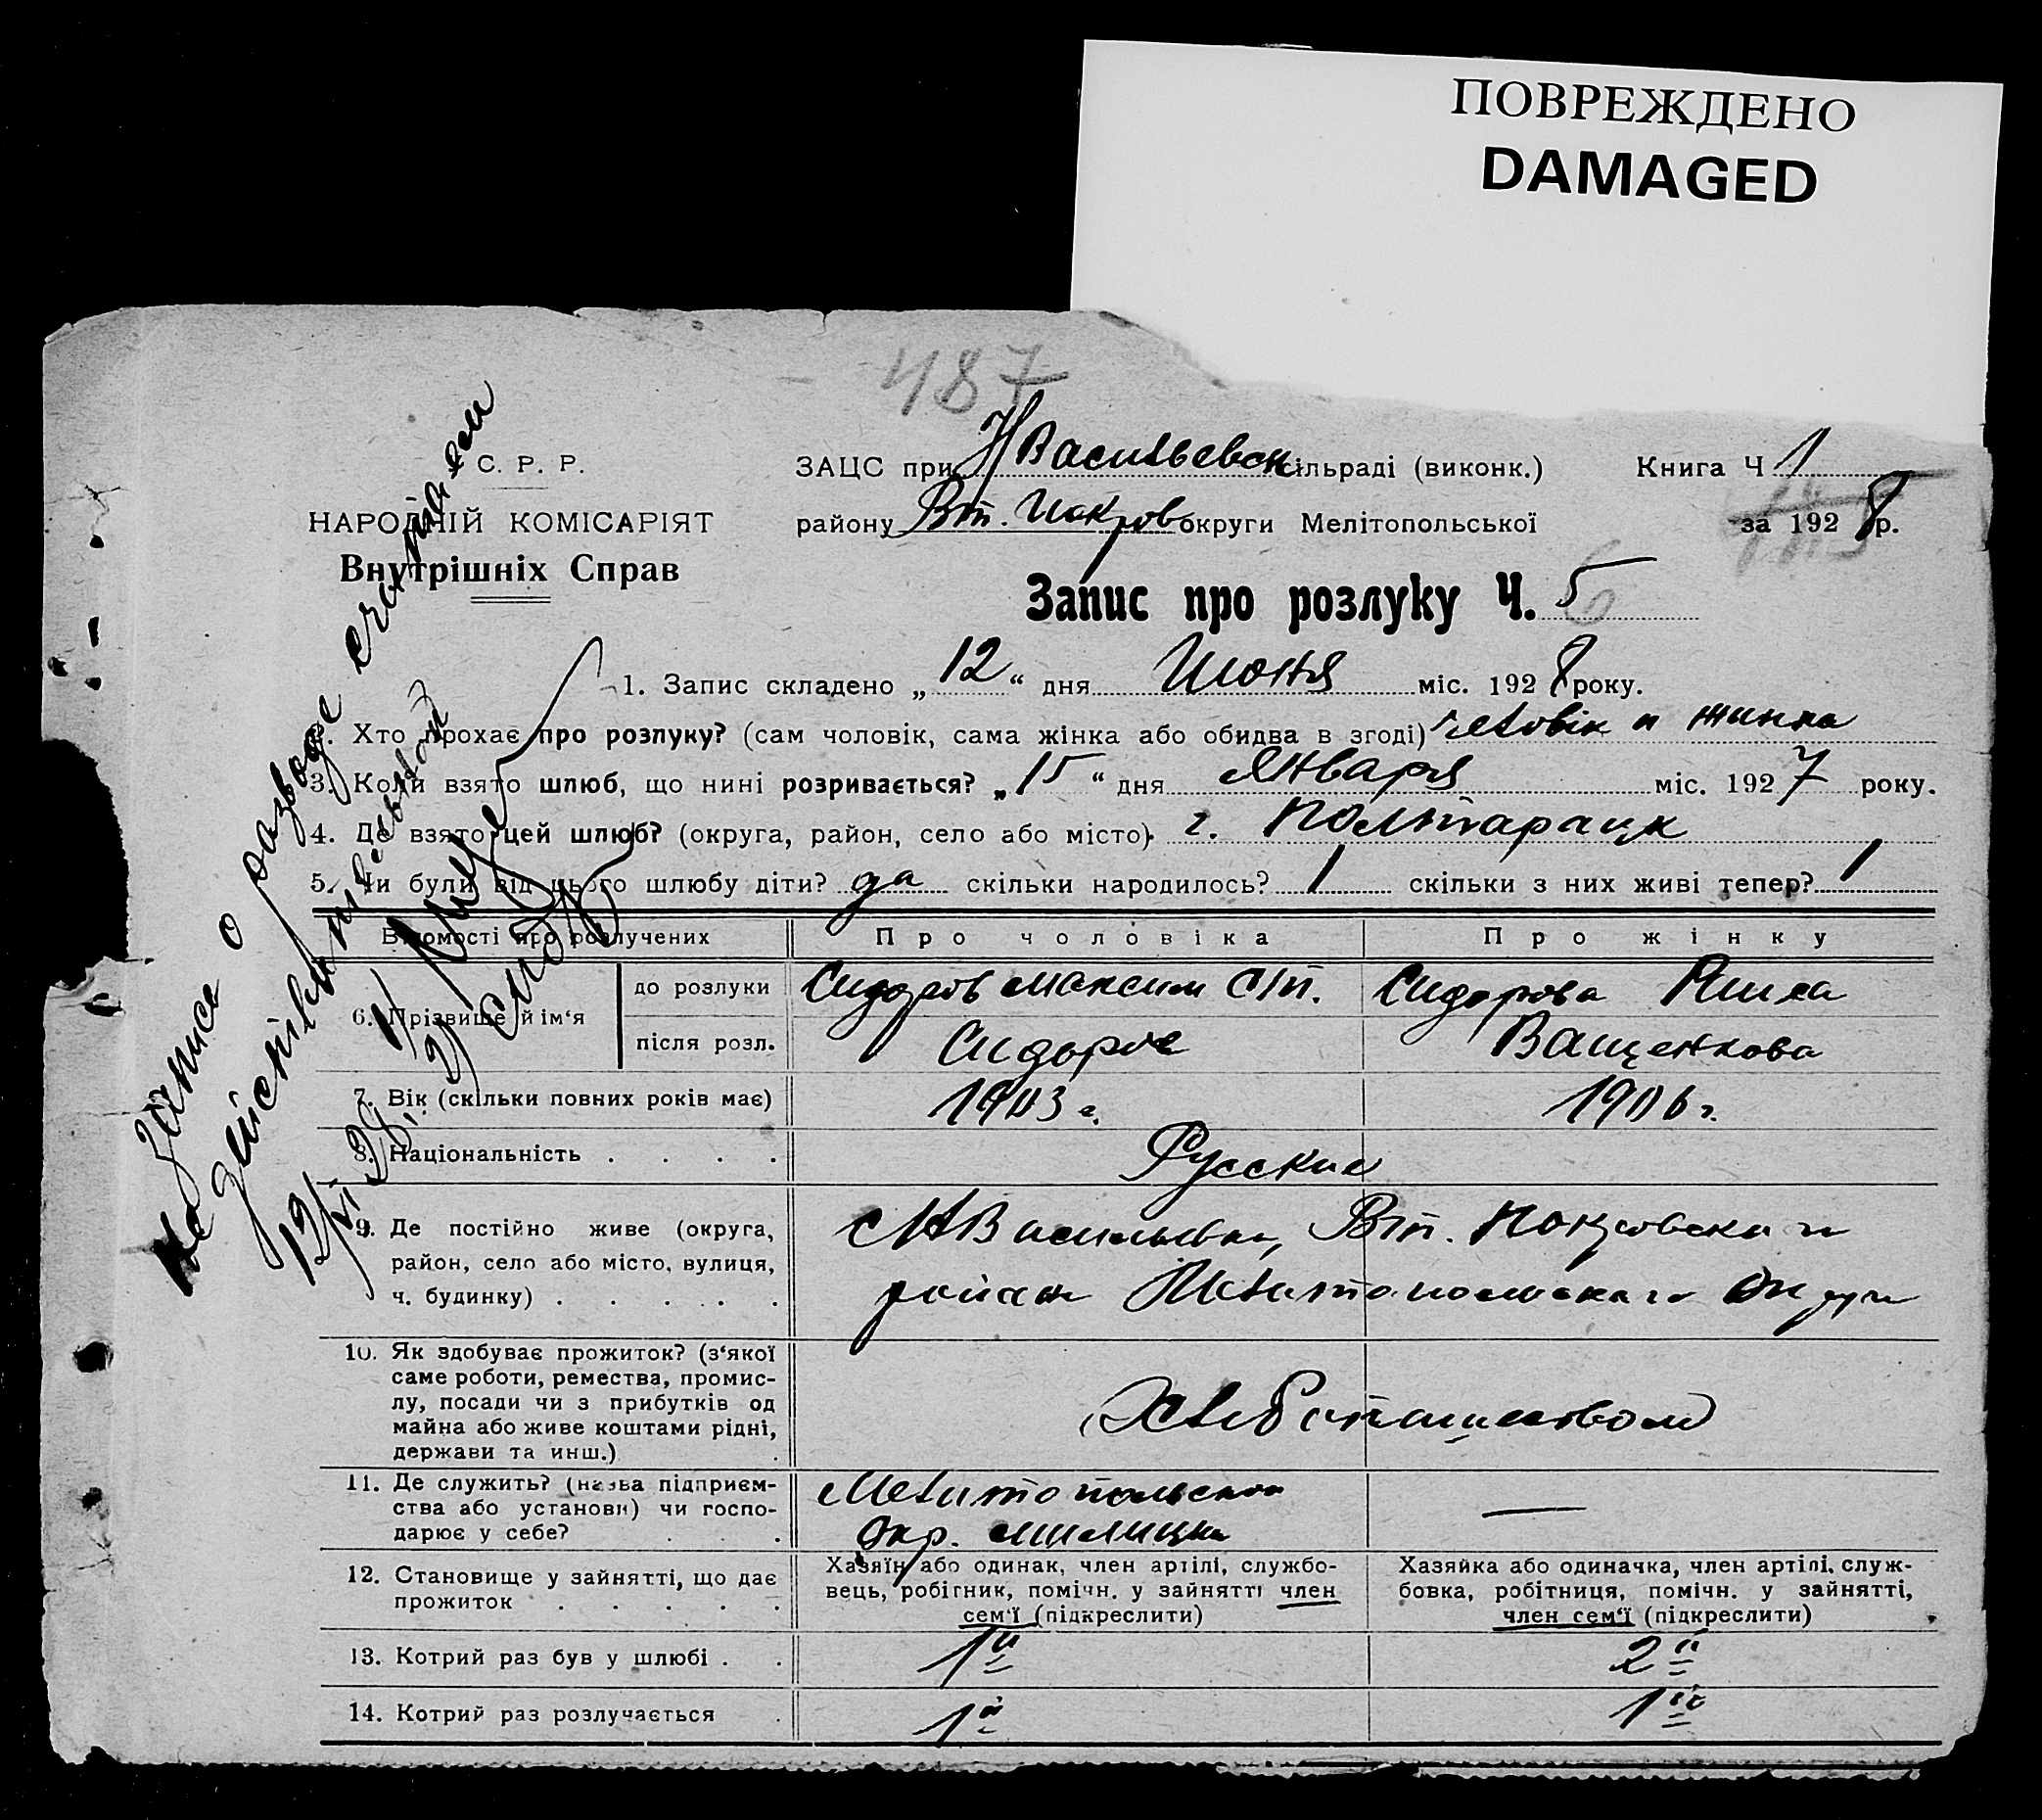 ПОВРЕЖДЕНО
DAMAGED
487
С. Р. Р.
НАРОДНІЙ КОМІСАРІЯТ
Внутрішніх Справ
ЗАЦС при Н Васильевск сільраді (виконк.) Книга Ч 1
району Вт. Покров округи Мелітопольської за 1928 р.
Запис про розлуку Ч. 5
1. Запис складено „12“ дня Июня міс. 1928 року.
Хто прохає про розлуку? (сам чоловік, сама жінка або обидва в згоді) человік и жинка
3. Коли взято шлюб, що нині розривається? „15“ дня Января міс. 1927 року.
4. Де взято цей шлюб? (округа, район, село або місто) г. Полтарацк
5. Чи були від цього шлюбу діти? да скільки народилось? 1 скільки з них живі тепер? 1
Відомості про розлучених Про чоловіка Про жінку
6. Прізвище й ім‘я до розлуки Сидоров Максим Сп. Сидорова
після розл. Сидоров Ващенкова
7. Вік (скільки повних років має) 1903 г. 1906 г.
8. Національність Русские
9. Де постійно живе (округа, район, село або місто, вулиця, ч. будинку)
с Н Васильевка, Вт. Покровскаго
район Мелитопольскаго Округи
10. Як здобуває прожиток? (з‘якої
саме роботи, ремества, промис-
лу, посади чи з прибутків од
майна або живе коштами рідні,
держави та инш.)
Хлебопашеством
11. Де служить? (назва підприєм-
ства або установи) чи госпо-
дарює у себе?
Мелитопольской
Окр. милиции —
12. Становище у зайнятті, що дає
прожиток
Хазяїн або одинак, член артілі, службо-
вець, робітник, помічн. у зайнятті член
сем‘ї (підкреслити)
Хазяйка або одиначка, член артілі, служ-
бовка, робітниця, помічн. у зайнятті,
член сем‘ї (підкреслити)
13. Котрий раз був у шлюбі 1й 2й
14. Котрий раз розлучається 1й 1й
Запись о разводе считаем
действительной
12/VI 28